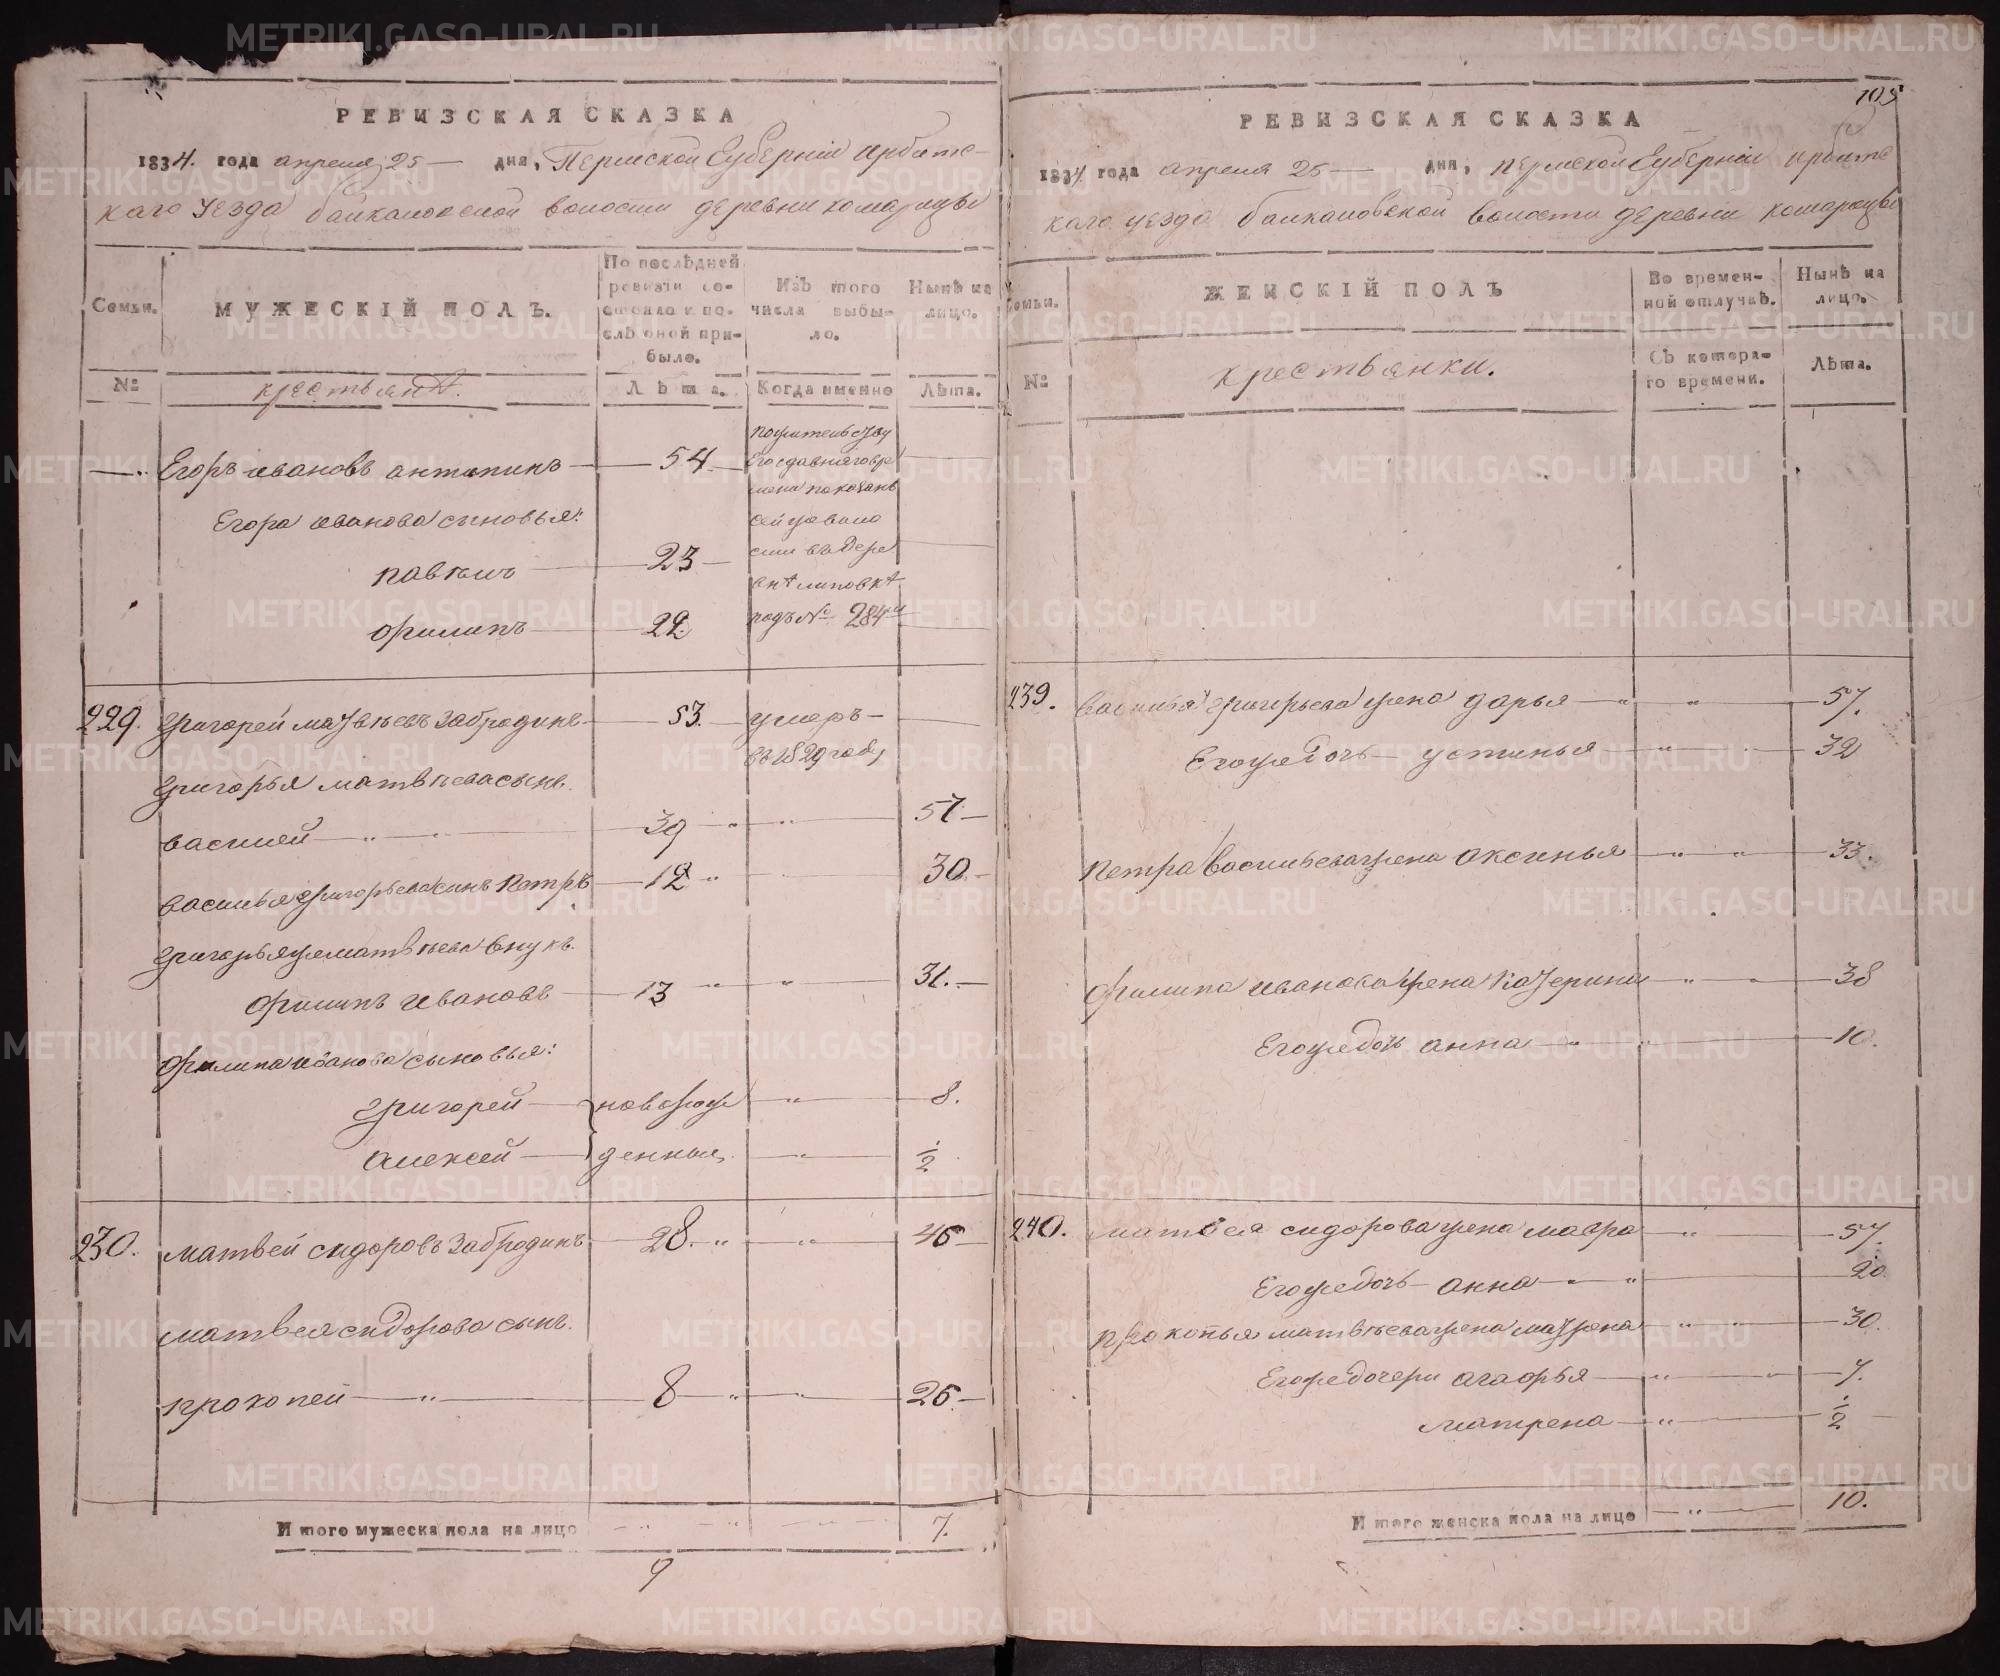 РЕВИЗСКАЯ СКАЗКА
1834. года апреля 25 дня, Пермской Губернiи ирбитс-
каго уезда байкаловской волости деревни комарицы
Семьи.
МУЖЕСКIЙ ПОЛЪ.
По послѣдней ревизiи со-стояло и по-слѣ оной при-было.
Изъ того числа выбы-ло.
Нынѣ на лицо.
№
крестьянѣ.
Лѣта.
Когда именно
Лѣта.
Егоръ ивановъ антипинъ 54
Егора иванова сыновья:
павелъ 23
филипъ 22.
показанъ
въ дере
внѣ липовкѣ
подъ № 284
229. григорей матвѣевъ Забродинъ 53. умеръ
въ 1829 году
григорья матвѣева сынъ.
василей 39 57.
василья григорьева сынъ Петръ 12 30.
григорья же матвѣева внукъ.
филипъ ивановъ 13 31.
филипа иванова сыновья:
григорей новорож 8.
алексей денныя 1/2
230. матвей сидоровъ Забродинъ 28. 46
матвея сидорова сынъ.
прокопей 8 26.
Итого мужеска пола на лицо 7.
9
105
РЕВИЗСКАЯ СКАЗКА
1834. года апреля 25 дня, пермской Губернiи ирбитс
каго уезда байкаловской волости деревни комарицы
Семьи.
ЖЕНСКIЙ ПОЛЪ
Во времен-ной отлучкѣ.
Нынѣ на лицо.
№
крестьянки.
Съ котора-го времени.
Лѣта.
239. василья григорьева жена дарья 57.
Егожъ дочь устинья 32
петра васильева жена аксинья 33.
филипа иванова жена катерина 38
Егожъ дочь анна 10.
240. матвея сидорова жена мавра 57.
Егожъ дочь анна 20
прокопья матвѣева жена матрена 30.
Егожъ дочери агафья 7.
матрена 1/2
Итого женска пола на лицо 10.
METRIKI.GASO-URAL.RU